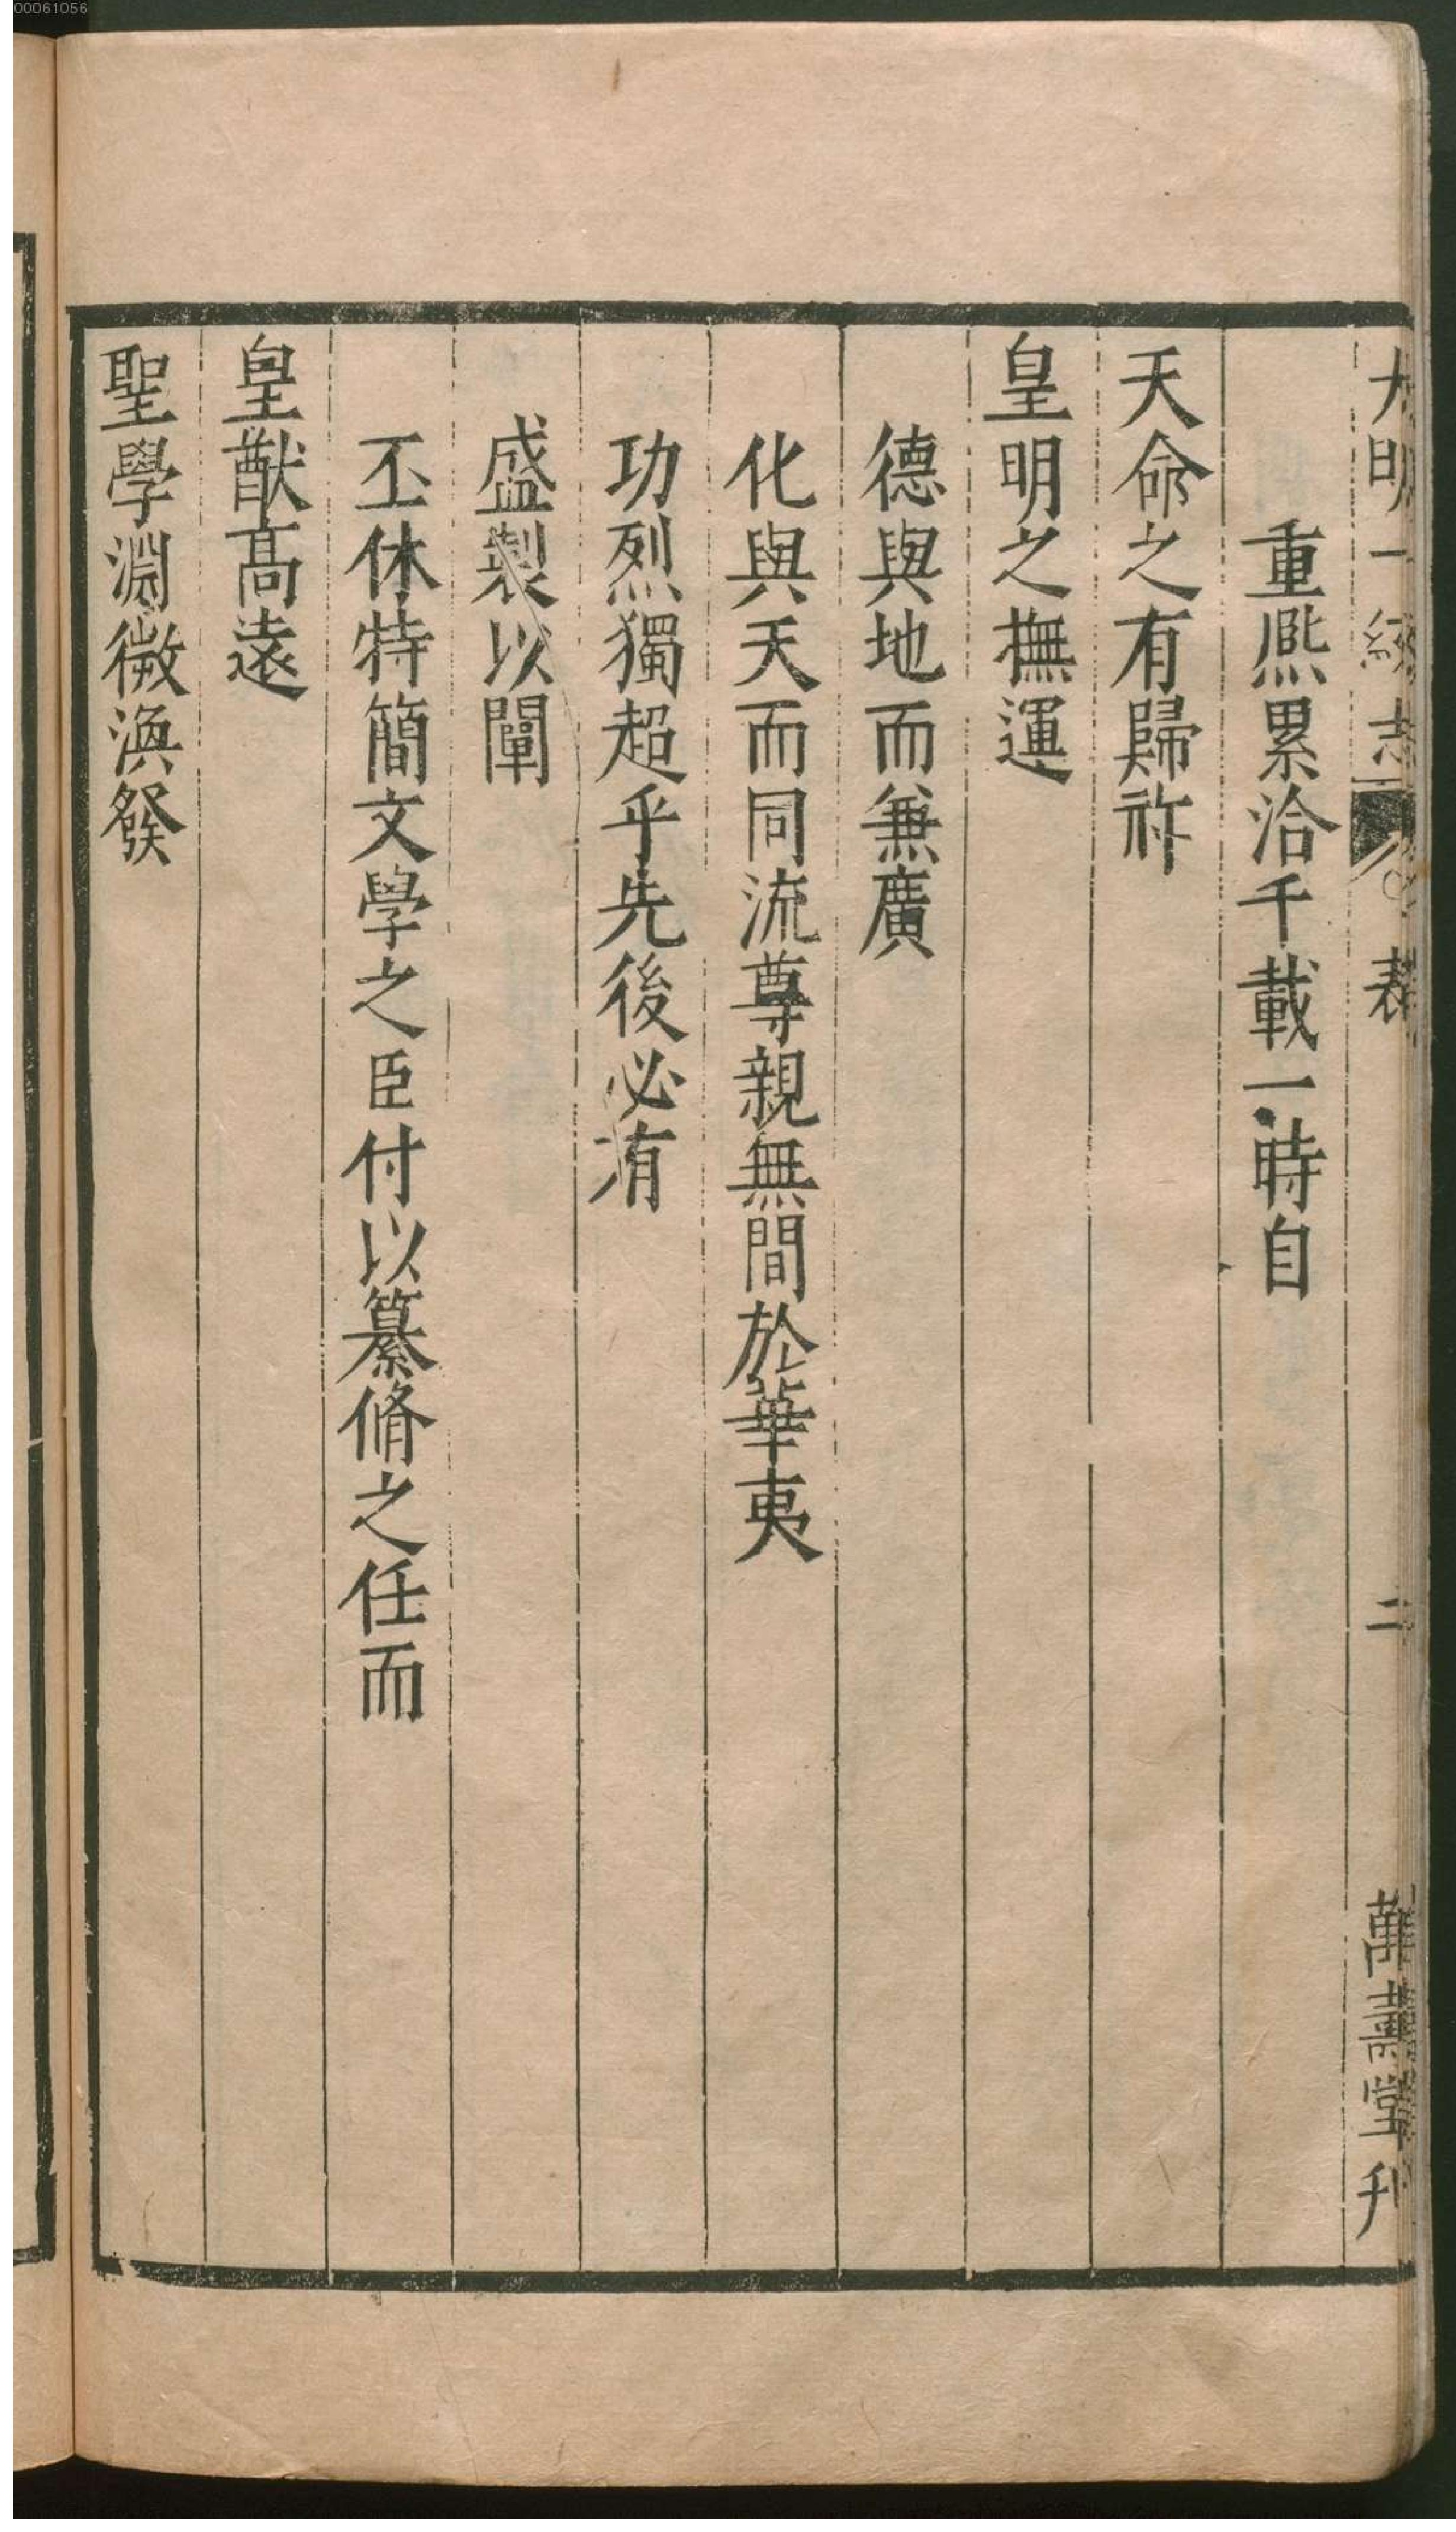 00061056
大明一統志
表
二
萬壽堂刊
重熈累洽千載一時自
天命之有歸祚
皇明之撫運
德與地而兼廣
化與天而同流尊親無間於華夷
功烈獨超乎先後必有
盛製以闡
丕休特簡文學之臣付以纂脩之任而
皇猷髙遠
聖學淵微渙發